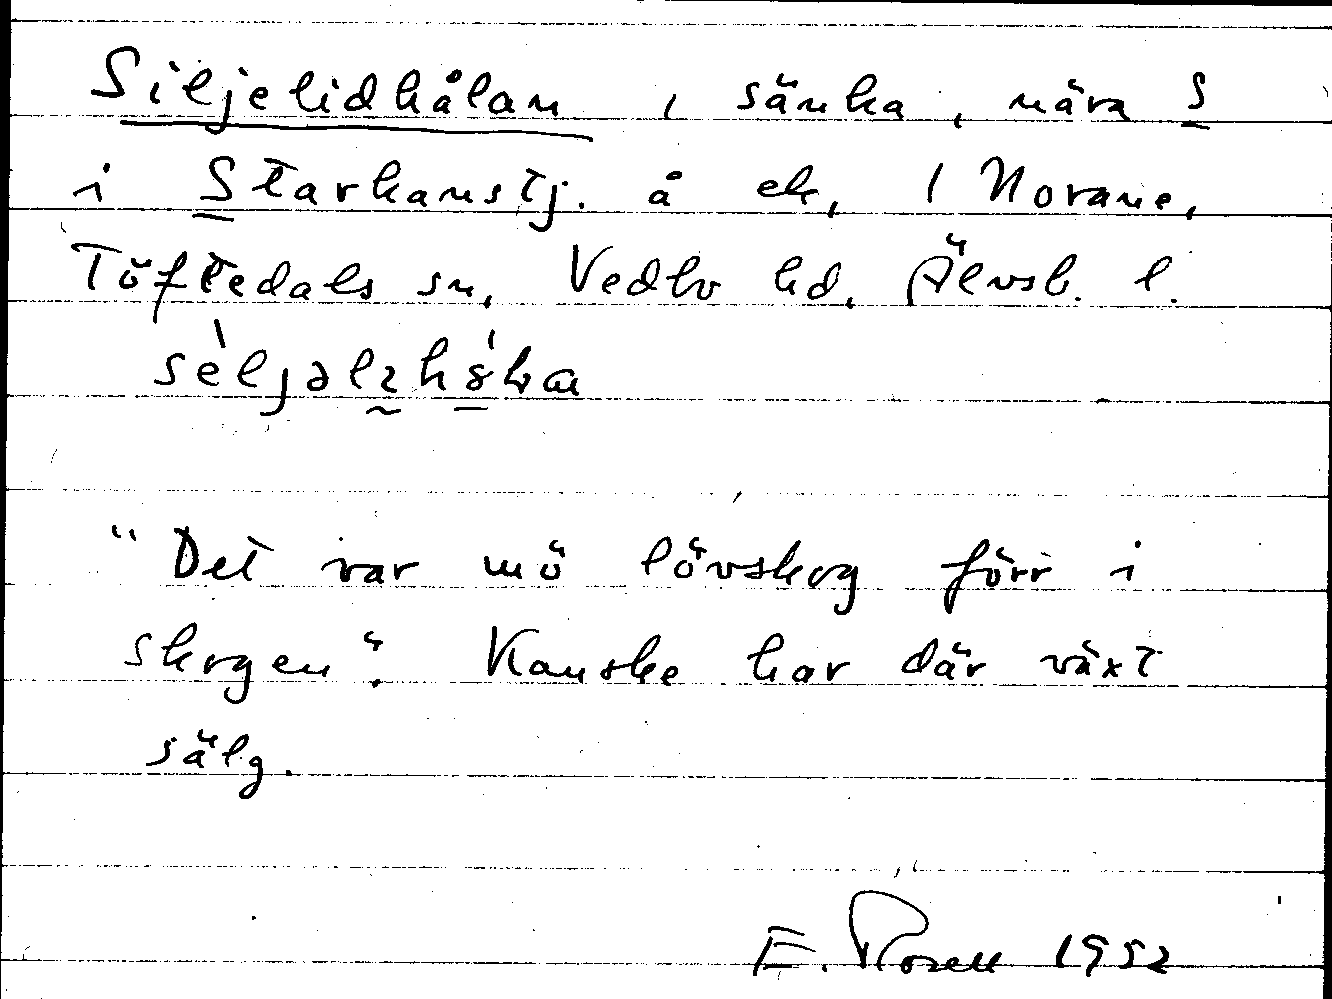 Siljelidhålan, sänka, nära S
i Starkanstj. å ek, 1 Norane,
Töftedals sn, Vedbo hd, Älvsb. l.
"Det var mö lövskog förr i
skogen". Kanske har där växt
sälg.
E. Rosell 1952